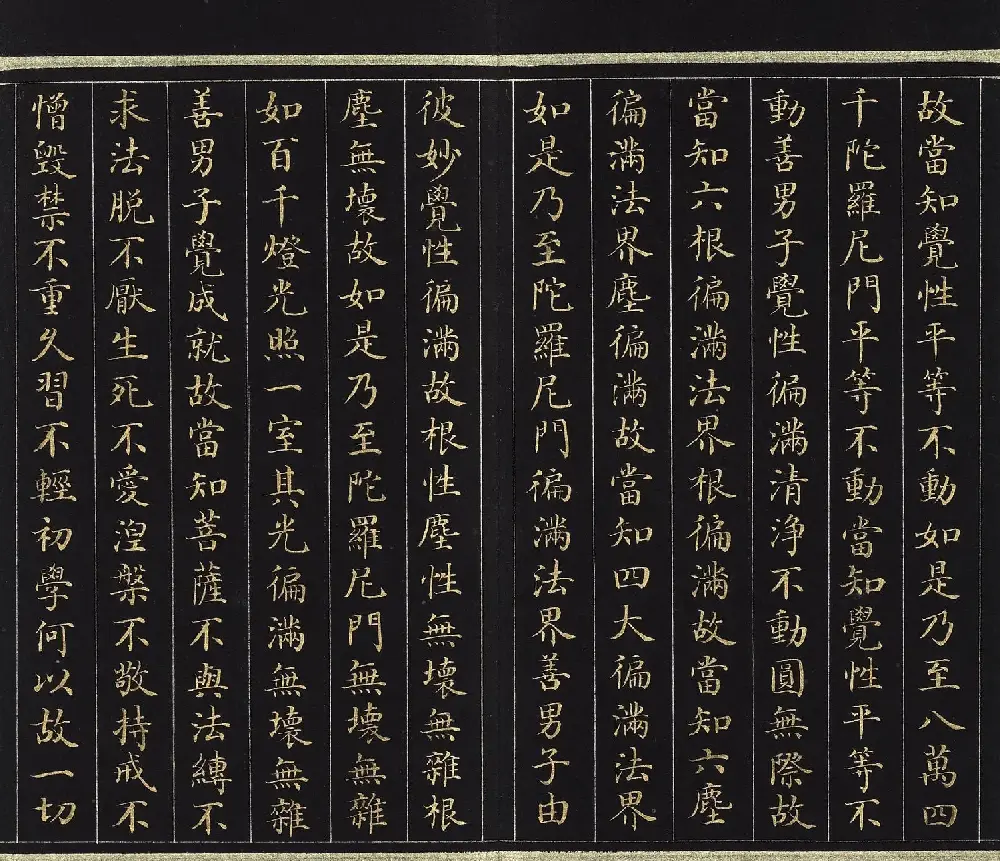 故當知覺性平等不動如是乃至八萬四
千陀羅尼門平等不動當知覺性平等不
動善男子覺性徧滿清淨不動圓無際故
當知六根徧滿法界根徧滿故當知六塵
徧滿法界塵徧滿故當知四大徧滿法界
如是乃至陀羅尼門徧滿法界善男子由
彼妙覺性徧滿故根性塵性無壞無雜根
塵無壞故如是乃至陀羅尼門無壞無雜
如百千燈光照一室其光徧滿無壞無雜
善男子覺成就故當知菩薩不與法縛不
求法脱不厭生死不愛涅槃不敬持戒不
憎毀禁不重久習不輕初學何以故一切